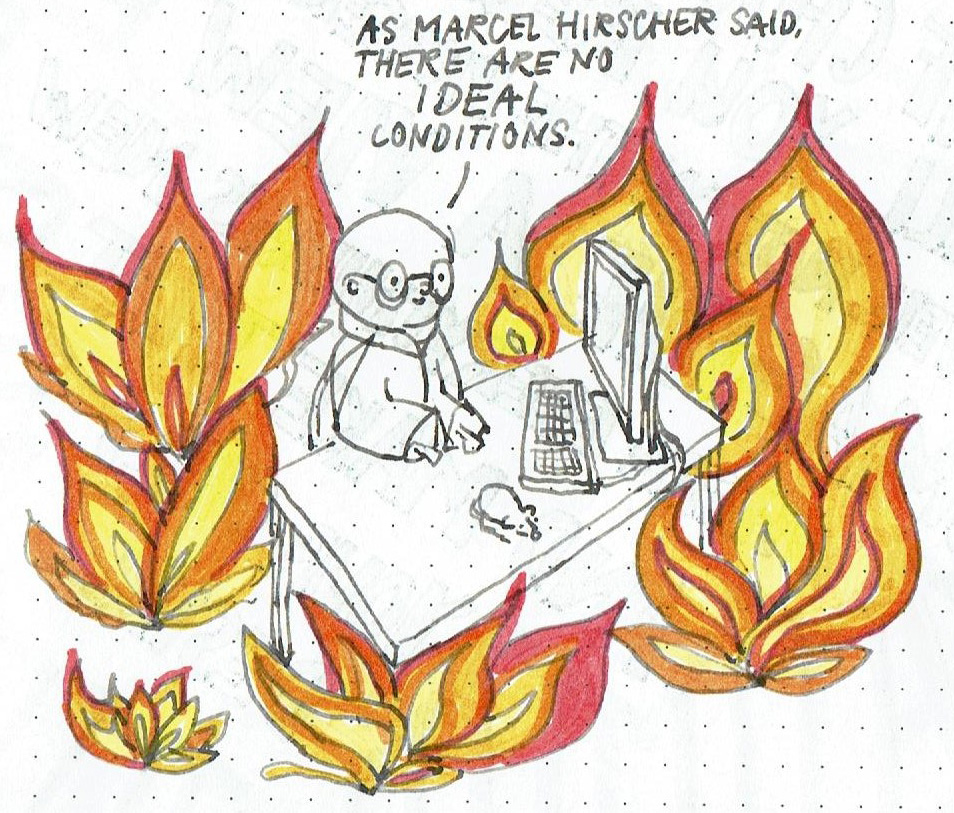 AS MARCEL HIRSCHER SAID,
THERE ARE NO
IDEAL
CONDITIONS.